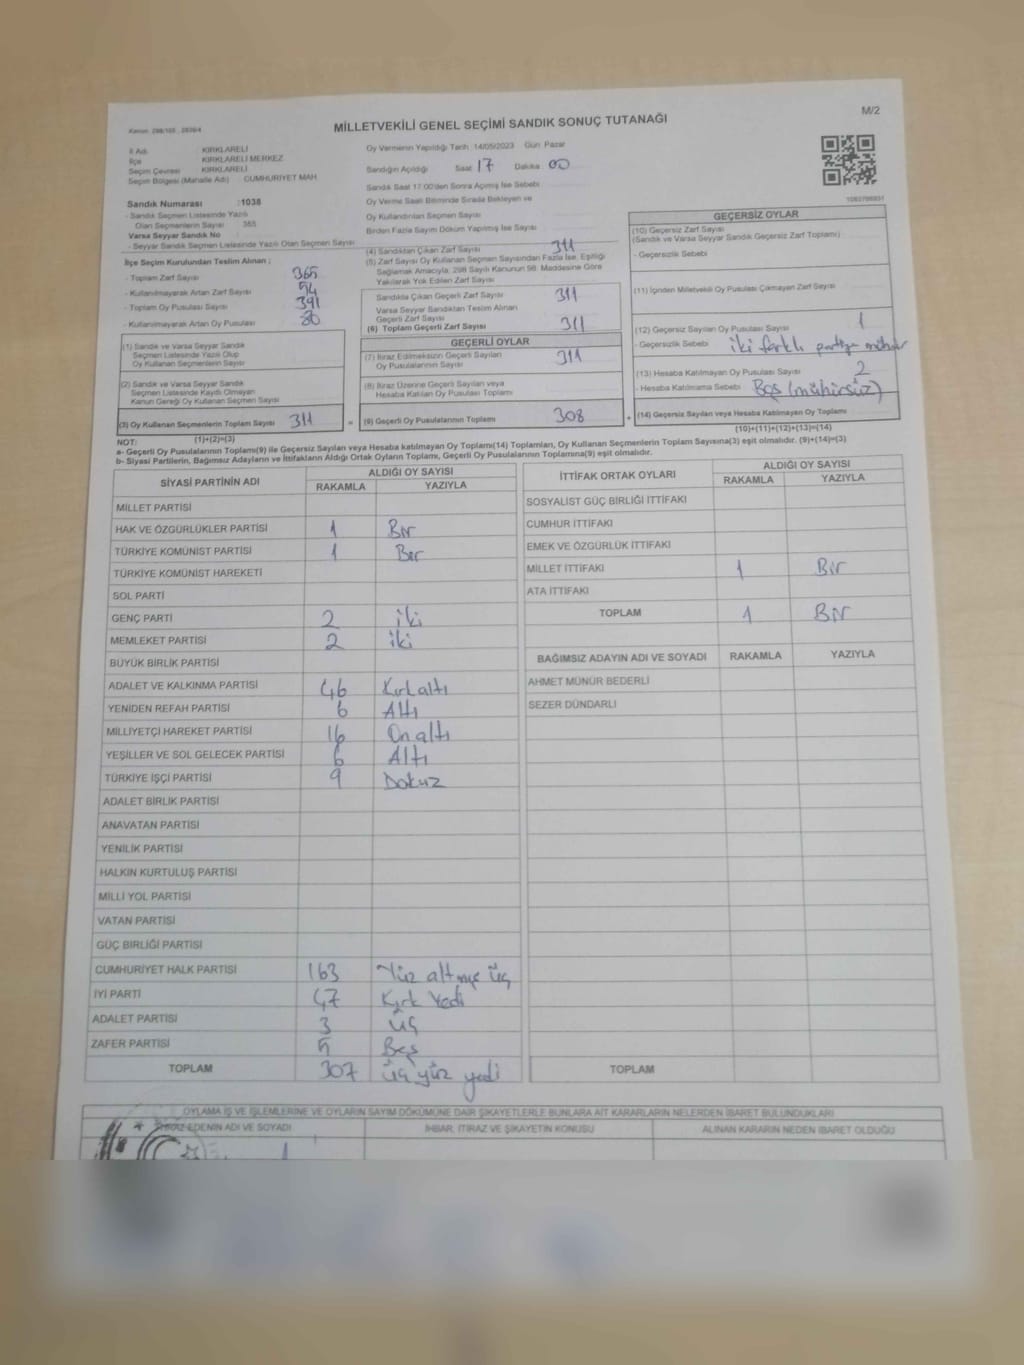 M/2
Kanun: 298/105 , 2839/4
MİLLETVEKİLİ GENEL SEÇİMİ SANDIK SONUÇ TUTANAĞI
İl Adı KIRKLARELİ
İlçe KIRKLARELİ MERKEZ
Seçim Çevresi KIRKLARELİ
Seçim Bölgesi (Mahalle Adı) CUMHURİYET MAH.
Oy Vermenin Yapıldığı Tarih 14/05/2023 Gün: Pazar
Sandığın Açıldığı Saat 17 Dakika 00
Sandık Saat 17:00'den Sonra Açılmış İse Sebebi
Oy Verme Saati Bitiminde Sırada Bekleyen ve
Oy Kullandırılan Seçmen Sayısı
Birden Fazla Sayım Döküm Yapılmış İse Sayısı
Sandık Numarası :1038
- Sandık Seçmen Listesinde Yazılı
Olan Seçmenlerin Sayısı 365
Varsa Seyyar Sandık No
- Seyyar Sandık Seçmen Listesinde Yazılı Olan Seçmen Sayısı
İlçe Seçim Kurulundan Teslim Alınan ;
- Toplam Zarf Sayısı 365
- Kullanılmayarak Artan Zarf Sayısı 54
- Toplam Oy Pusulası Sayısı 391
- Kullanılmayarak Artan Oy Pusulası 80
(1) Sandık ve Varsa Seyyar Sandık
Seçmen Listesinde Yazılı Olup
Oy Kullanan Seçmenlerin Sayısı
(2) Sandık ve Varsa Seyyar Sandık
Seçmen Listesinde Kaydı Olmayan
Kanun Gereği Oy Kullanan Seçmen Sayısı
(3) Oy Kullanan Seçmenlerin Toplam Sayısı 311 =
(1)+(2)=(3)
(4) Sandıktan Çıkan Zarf Sayısı 311
(5) Zarf Sayısı Oy Kullanan Seçmen Sayısından Fazla İse, Eşitliği
Sağlamak Amacıyla, 298 Sayılı Kanunun 98. Maddesine Göre
Yakılarak Yok Edilen Zarf Sayısı
Sandıkta Çıkan Geçerli Zarf Sayısı 311
Varsa Seyyar Sandıktan Teslim Alınan
Geçerli Zarf Sayısı
(6) Toplam Geçerli Zarf Sayısı 311
GEÇERLİ OYLAR
(7) İtiraz Edilmeksizin Geçerli Sayılan
Oy Pusulasının Sayısı 311
(8) İtiraz Üzerine Geçerli Sayılan veya
Hesaba Katılan Oy Pusulası Toplamı
(9) Geçerli Oy Pusulalarının Toplamı 308 +
GEÇERSİZ OYLAR
(10) Geçersiz Zarf Sayısı
(Sandık ve Varsa Seyyar Sandık Geçersiz Zarf Toplamı)
- Geçersizlik Sebebi
(11) İçinden Milletvekili Oy Pusulası Çıkmayan Zarf Sayısı
(12) Geçersiz Sayılan Oy Pusulası Sayısı 1
- Geçersizlik Sebebi iki farklı partiye mühür
(13) Hesaba Katılmayan Oy Pusulası Sayısı 2
- Hesaba Katılmama Sebebi Boş (mühürsüz)
(14) Geçersiz Sayılan veya Hesaba Katılmayan Oy Toplamı
(10)+(11)+(12)+(13)=(14)
NOT:
a- Geçerli Oy Pusulalarının Toplamı(9) ile Geçersiz Sayılan veya Hesaba katılmayan Oy Toplamı(14) Toplamları, Oy Kullanan Seçmenlerin Toplam Sayısına(3) eşit olmalıdır. (9)+(14)=(3)
b- Siyasi Partilerin, Bağımsız Adayların ve İttifakların Aldığı Ortak Oyların Toplamı, Geçerli Oy Pusulalarının Toplamına(9) eşit olmalıdır.
SİYASİ PARTİNİN ADI ALDIĞI OY SAYISI
RAKAMLA YAZIYLA
MİLLET PARTİSİ
HAK VE ÖZGÜRLÜKLER PARTİSİ 1 Bir
TÜRKİYE KOMÜNİST PARTİSİ 1 Bir
TÜRKİYE KOMÜNİST HAREKETİ
SOL PARTİ
GENÇ PARTİ 2 iki
MEMLEKET PARTİSİ 2 iki
BÜYÜK BİRLİK PARTİSİ
ADALET VE KALKINMA PARTİSİ 46 Kırkaltı
YENİDEN REFAH PARTİSİ 6 Altı
MİLLİYETÇİ HAREKET PARTİSİ 16 Onaltı
YEŞİLLER VE SOL GELECEK PARTİSİ 6 Altı
TÜRKİYE İŞÇİ PARTİSİ 9 Dokuz
ADALET BİRLİK PARTİSİ
ANAVATAN PARTİSİ
YENİLİK PARTİSİ
HALKIN KURTULUŞ PARTİSİ
MİLLİ YOL PARTİSİ
VATAN PARTİSİ
GÜÇ BİRLİĞİ PARTİSİ
CUMHURİYET HALK PARTİSİ 163 Yüz altmış üç
İYİ PARTİ 47 Kırk Yedi
ADALET PARTİSİ 3 Üç
ZAFER PARTİSİ 5 Beş
TOPLAM 307 üç yüz yedi
İTTİFAK ORTAK OYLARI ALDIĞI OY SAYISI
RAKAMLA YAZIYLA
SOSYALİST GÜÇ BİRLİĞİ İTTİFAKI
CUMHUR İTTİFAKI
EMEK VE ÖZGÜRLÜK İTTİFAKI
MİLLET İTTİFAKI 1 Bir
ATA İTTİFAKI
TOPLAM 1 Bir
BAĞIMSIZ ADAYIN ADI VE SOYADI RAKAMLA YAZIYLA
AHMET MÜNÜR BEDERLİ
SEZER DÜNDARLI
TOPLAM
OYLAMA İŞ VE İŞLEMLERİNE VE OYLARIN SAYIM DÖKÜMÜNE DAİR ŞİKAYETLERLE BUNLARA AİT KARARLARIN NELERDEN İBARET BULUNDUKLARI
İTİRAZ EDENİN ADI VE SOYADI İHBAR, İTİRAZ VE ŞİKAYETİN KONUSU ALINAN KARARIN NEDEN İBARET OLDUĞU